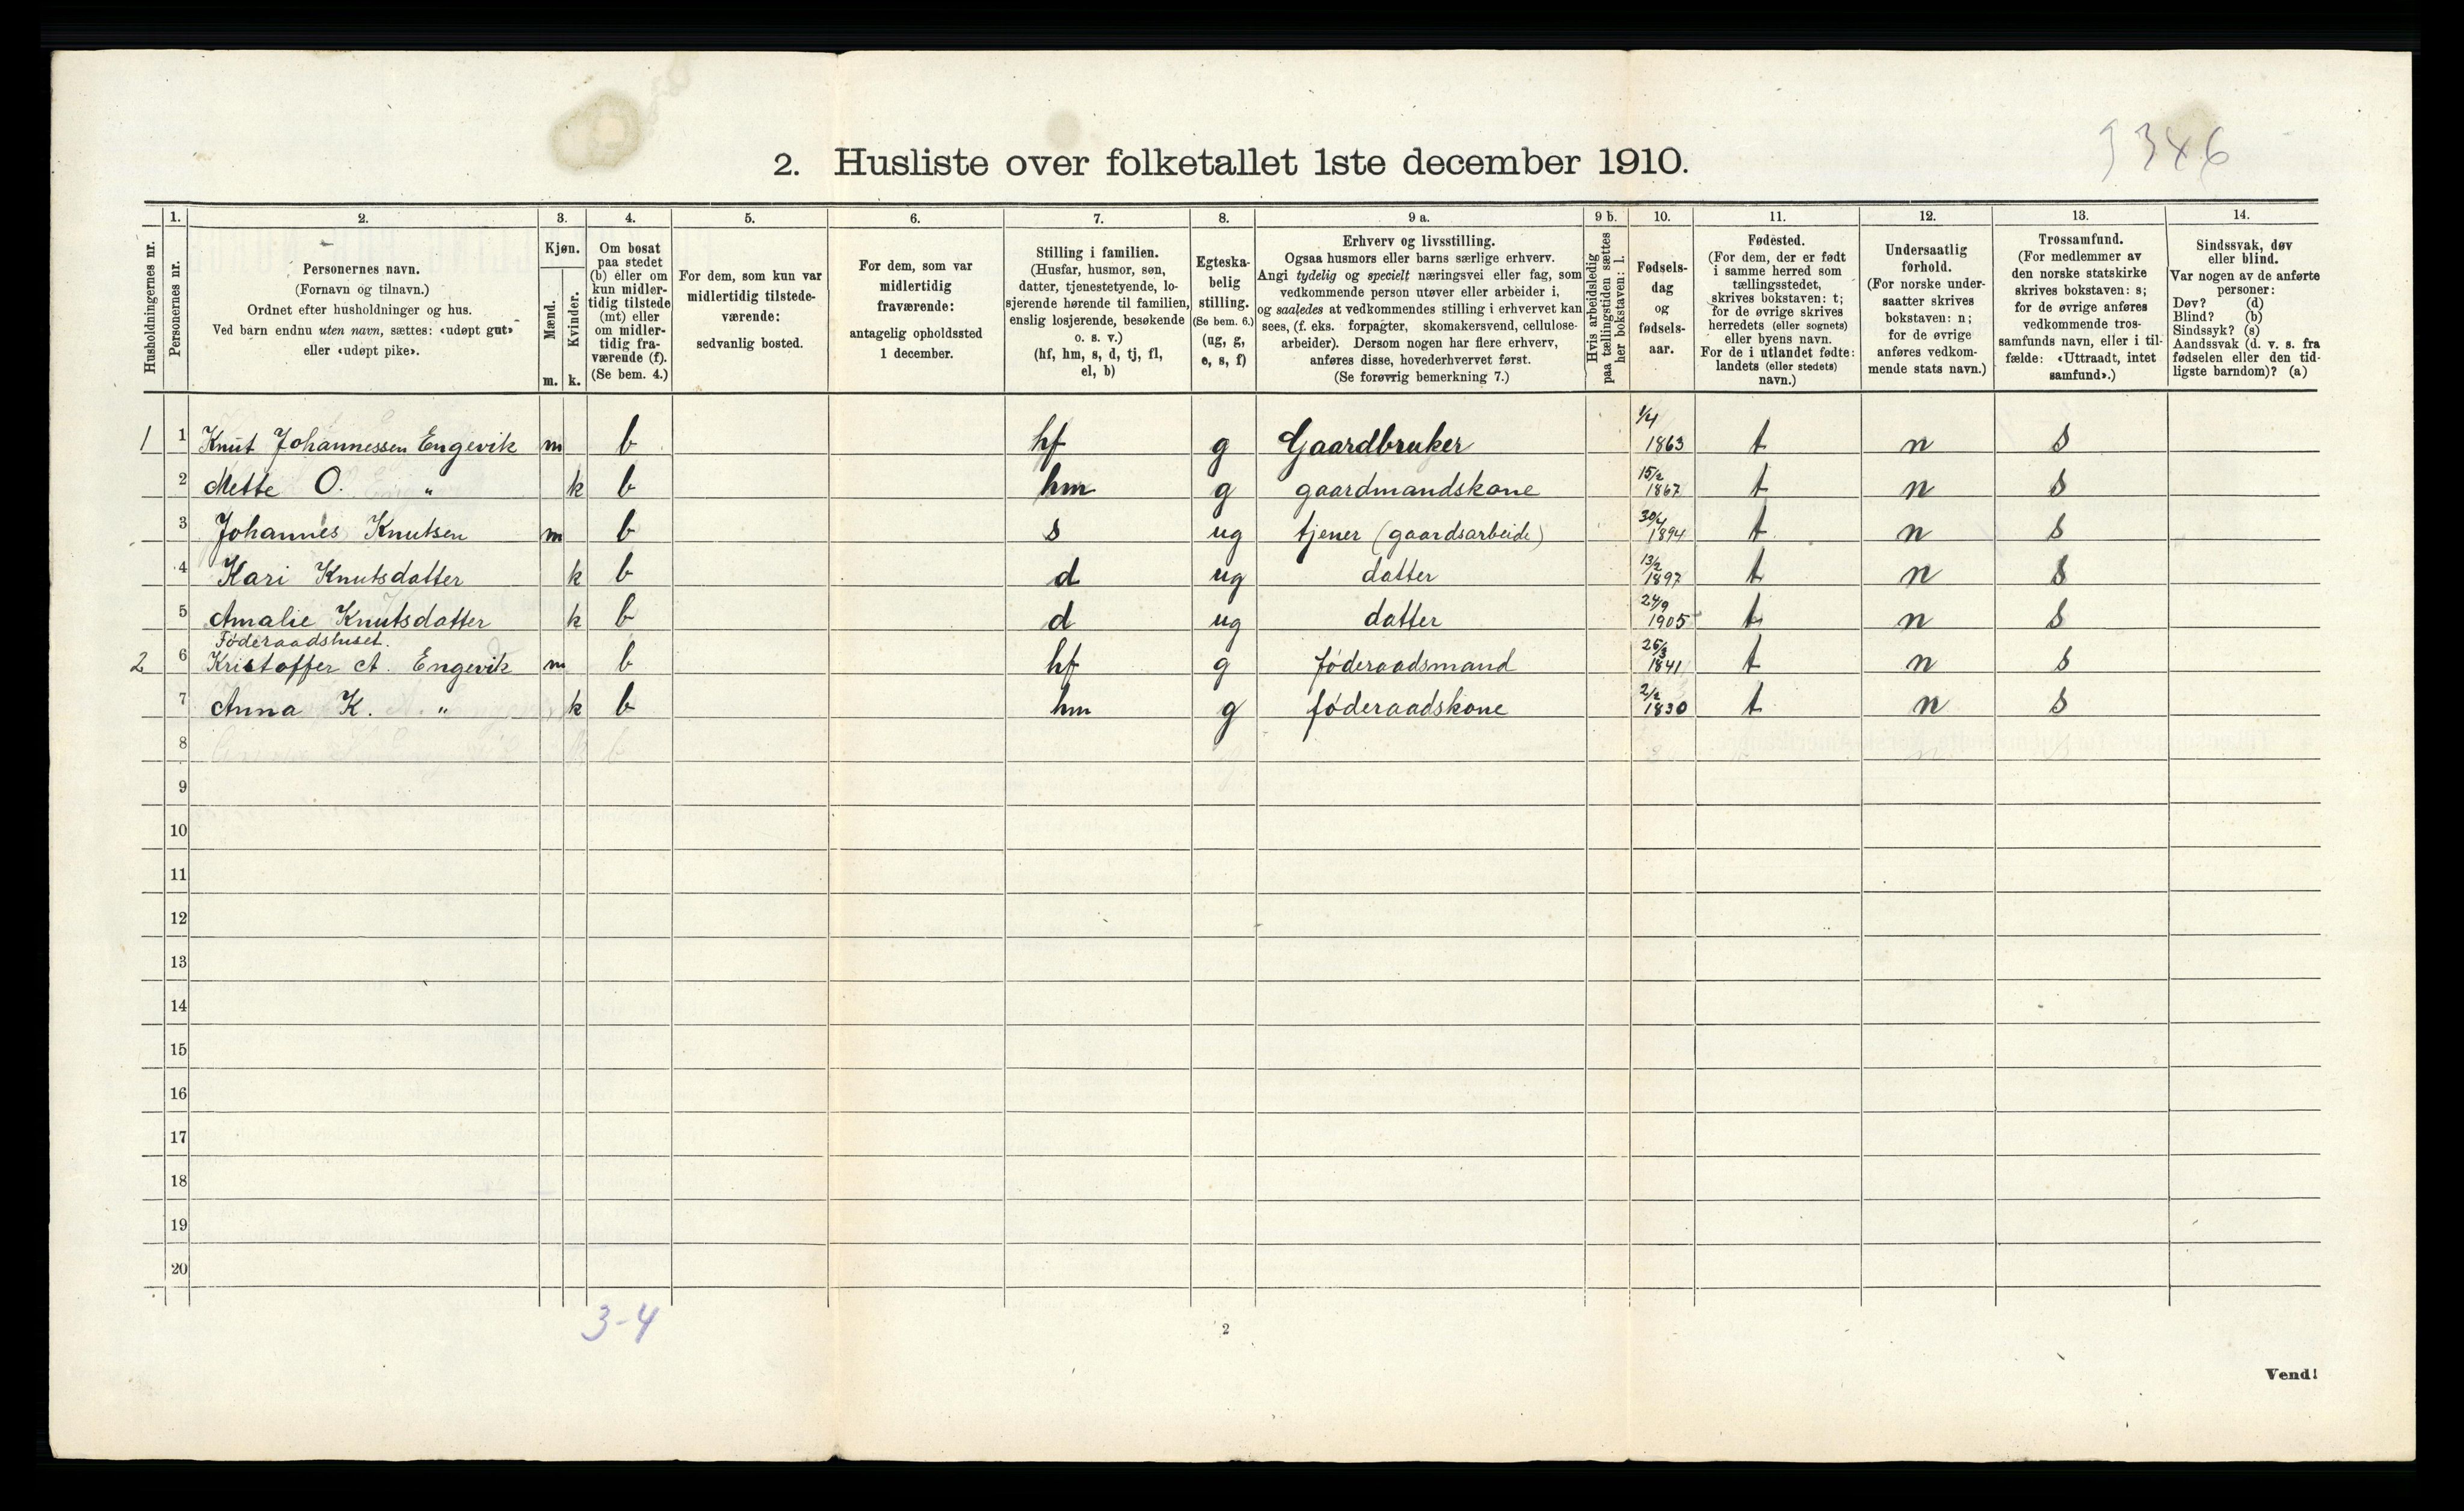 3346
2. Husliste over folketallet 1ste december 1910.
Husholdningernes nr.
1. Personernes nr.
2. Personernes navn. (Fornavn og tilnavn.) Ordnet efter husholdninger og hus. Ved barn endnu uten navn, sættes: «udøpt gut» eller «udøpt pike».
3. Kjøn. Mænd. m. Kvinder. k.
4. Om bosat paa stedet (b) eller om kun midlertidig tilstede (mt) eller om midlertidig fraværende (f). (Se bem. 4.)
5. For dem, som kun var midlertidig tilstedeværende: sedvanlig bosted.
6. For dem, som var midlertidig fraværende: antagelig opholdssted 1 december.
7. Stilling i familien. (Husfar, husmor, søn, datter, tjenestetyende, losjerende hørende til familien, enslig losjerende, besøkende o. s. v.) (hf, hm, s, d, tj, fl, el, b)
8. Egteskabelig stilling. (Se bem. 6.) (ug, g, e, s, f)
9 a. Erhverv og livsstilling. Ogsaa husmors eller barns særlige erhverv. Angi tydelig og specielt næringsvei eller fag, som vedkommende person utøver eller arbeider i, og saaledes at vedkommendes stilling i erhvervet kan sees, (f. eks. forpagter, skomakersvend, cellulosearbeider). Dersom nogen har flere erhverv, anføres disse, hovederhvervet først. (Se forøvrig bemerkning 7.)
9 b. Hvis arbeidsledig paa tællingstiden sættes her bokstaven: l.
10. Fødselsdag og fødselsaar.
11. Fødested. (For dem, der er født i samme herred som tællingsstedet, skrives bokstaven: t; for de øvrige skrives herredets (eller sognets) eller byens navn. For de i utlandet fødte: landets (eller stedets) navn.)
12. Undersaatlig forhold. (For norske undersaatter skrives bokstaven: n; for de øvrige anføres vedkommende stats navn.)
13. Trossamfund. (For medlemmer av den norske statskirke skrives bokstaven: s; for de øvrige anføres vedkommende trossamfunds navn, eller i tilfælde: «Uttraadt, intet samfund».)
14. Sindssvak, døv eller blind. Var nogen av de anførte personer: Døv? (d) Blind? (b) Sindssyk? (s) Aandssvak (d. v. s. fra fødselen eller den tidligste barndom)? (a)
1 1 Knut Johannessen Engevik m b hf g Gaardbruker 1/4 1863 t n s
2 Mette O. " k b hm g gaardmandskone 15/2 1867 t n s
3 Johannes Knutsen m b s ug tjener (gaardsarbeide) 30/4 1894 t n s
4 Kari Knutsdatter k b d ug datter 13/2 1897 t n s
5 Amalie Knutsdatter k b d ug datter 24/9 1905 t n s
Føderaadshuset.
2 6 Kristoffer A. Engevik m b hf g føderaadsmand 25/3 1841 t n s
7 Anna K. " k b hm g føderaadskone 2/2 1830 t n s
8
9
10
11
12
13
14
15
16
17
18
19
20
3-4
2
Vend!